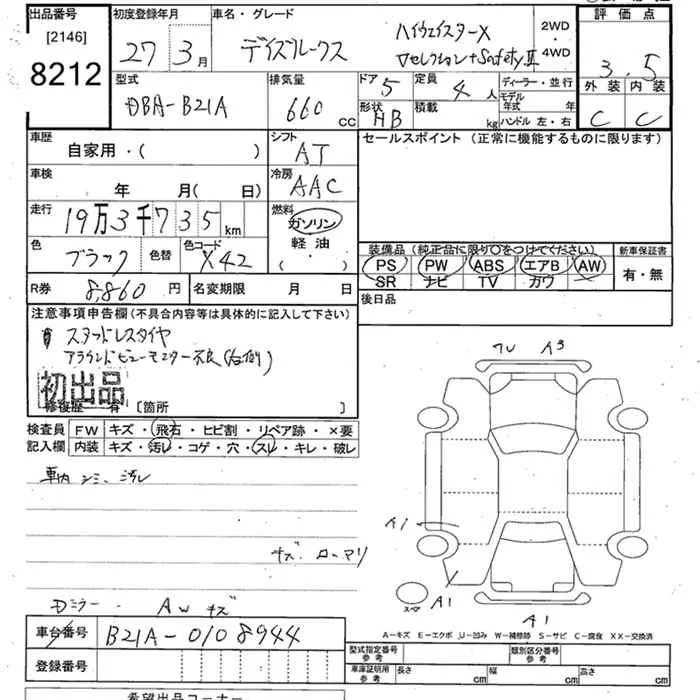 出品番号
[2146]
8212
初度登録年月
27 3月
車名・グレード
デイズルークス
ハイウェイスターX
Vセレクション+SafetyⅡ
2WD
・
4WD
評価点
3.5
外装 内装
C C
型式
DBA-B21A
排気量
660
CC
ドア
5
定員
4人
形状
HB
積載
kg
ディーラー・並行
モデル
年式 年
ハンドル 左・右
車歴
自家用・( )
シフト
AT
セールスポイント (正常に機能するものに限ります)
車検
年 月( 日)
冷房
AAC
走行
19万3千735km
燃料
ガソリン
軽油
( ・ )
色
ブラック
色替
色コード
X42
装備品 (純正品に限り○をつけてください)
PS PW ABS エアB AW
SR ナビ TV カワ
新車保証書
有・無
R券
8,860円
名変期限 月 日
後日品
注意事項申告欄(不具合内容等は具体的に記入して下さい)
スタッドレスタイヤ
アラウンドビューモニター不良(右側)
初出品
修復歴 有 [箇所 ]
検査員
記入欄
FW キズ・飛石・ヒビ割・リペア跡・×要
内装 キズ・汚レ・コゲ・穴・スレ・キレ・破レ
車内シミ、汚レ
キズ
Dミラー、AWキズ
A3
A1
A1
A1
スペア
A-キズ E-エクボ U-凹み W-補修跡 S-サビ C-腐食 XX-交換済
車台番号
B21A-0108944
登録番号
型式指定番号
参考
類別区分番号
参考
車庫証明用
参考
長さ cm
幅 cm
高さ cm
希望出品コーナー